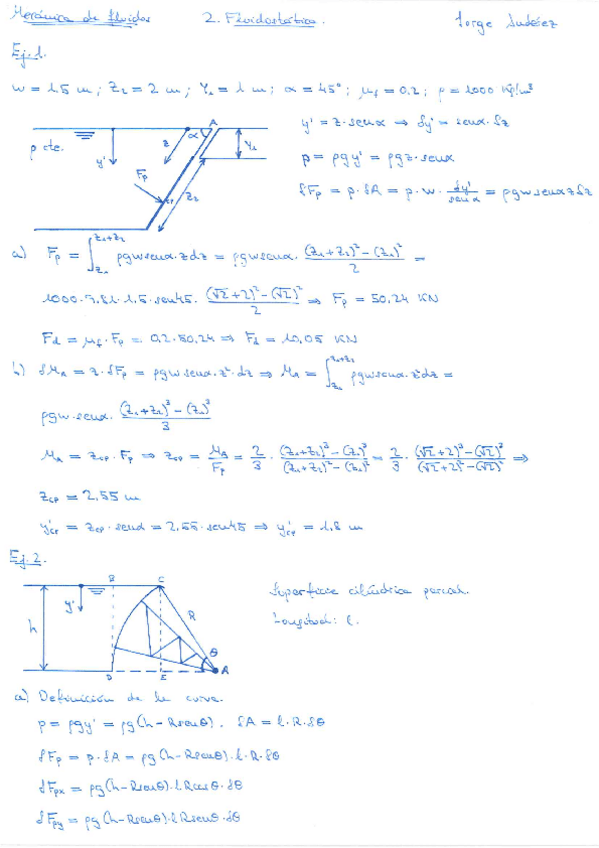 Mecánica de fluidos 2. Fluidostática. Jorge Judéez
Ej. 1.
w = 1.5 m ; Z₂ = 2 m ; Y₁ = 1 m ; α = 45° ; μf = 0.2 ; ρ = 1000 Kg/m³
A
p cte.
y'
z
α
Y₁
Fp
CP
Z₂
y' = z·senα ⇒ δy' = senα·δz
p = ρgy' = ρgz·senα
δFp = p·δA = p·w·δy'/senα = ρgwsenαzδz
a) Fp = ∫_{z₁}^{z₁+z₂} ρgwsenα·zdz = ρgwsenα·((z₁+z₂)²−(z₁)²)/2 =
1000·9.81·1.5·sen45·((√2+2)²−(√2)²)/2 ⇒ Fp = 50,24 KN
Fd = μf·Fp = 0.2·50,24 ⇒ Fd = 10,05 KN
b) δMA = z·δFp = ρgwsenα·z²·dz ⇒ MA = ∫_{z₁}^{z₁+z₂} ρgwsenα·z²dz =
ρgw·senα·((z₁+z₂)³−(z₁)³)/3
MA = zcp·Fp ⇒ zcp = MA/Fp = 2/3·((z₁+z₂)³−(z₁)³)/((z₁+z₂)²−(z₁)²) = 2/3·((√2+2)³−(√2)³)/((√2+2)²−(√2)²) ⇒
zcp = 2,55 m
y'cp = zcp·senα = 2.55·sen45 ⇒ y'cp = 1,8 m
Ej. 2.
B C
y'
h
R
θ
D E A
Superficie cilíndrica parcial.
Longitud: l.
a) Definición de la curva.
p = ρgy' = ρg(h−Rsenθ). δA = l·R·δθ
δFp = p·δA = ρg(h−Rsenθ)·l·R·δθ
δFpx = ρg(h−Rsenθ)·lRcosθ·δθ
δFpy = ρg(h−Rsenθ)·lRsenθ·δθ